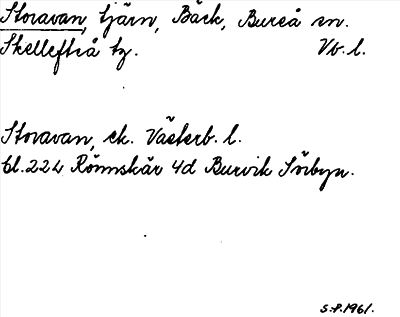 Storavan, tjärn, Bäck, Bureå sn.
Skellefteå tg. Vb.l.
Storavan, ek. Västerb. l.
bl.224 Rönnskär 4d Burvik Sörbyn.
S.P.1961.